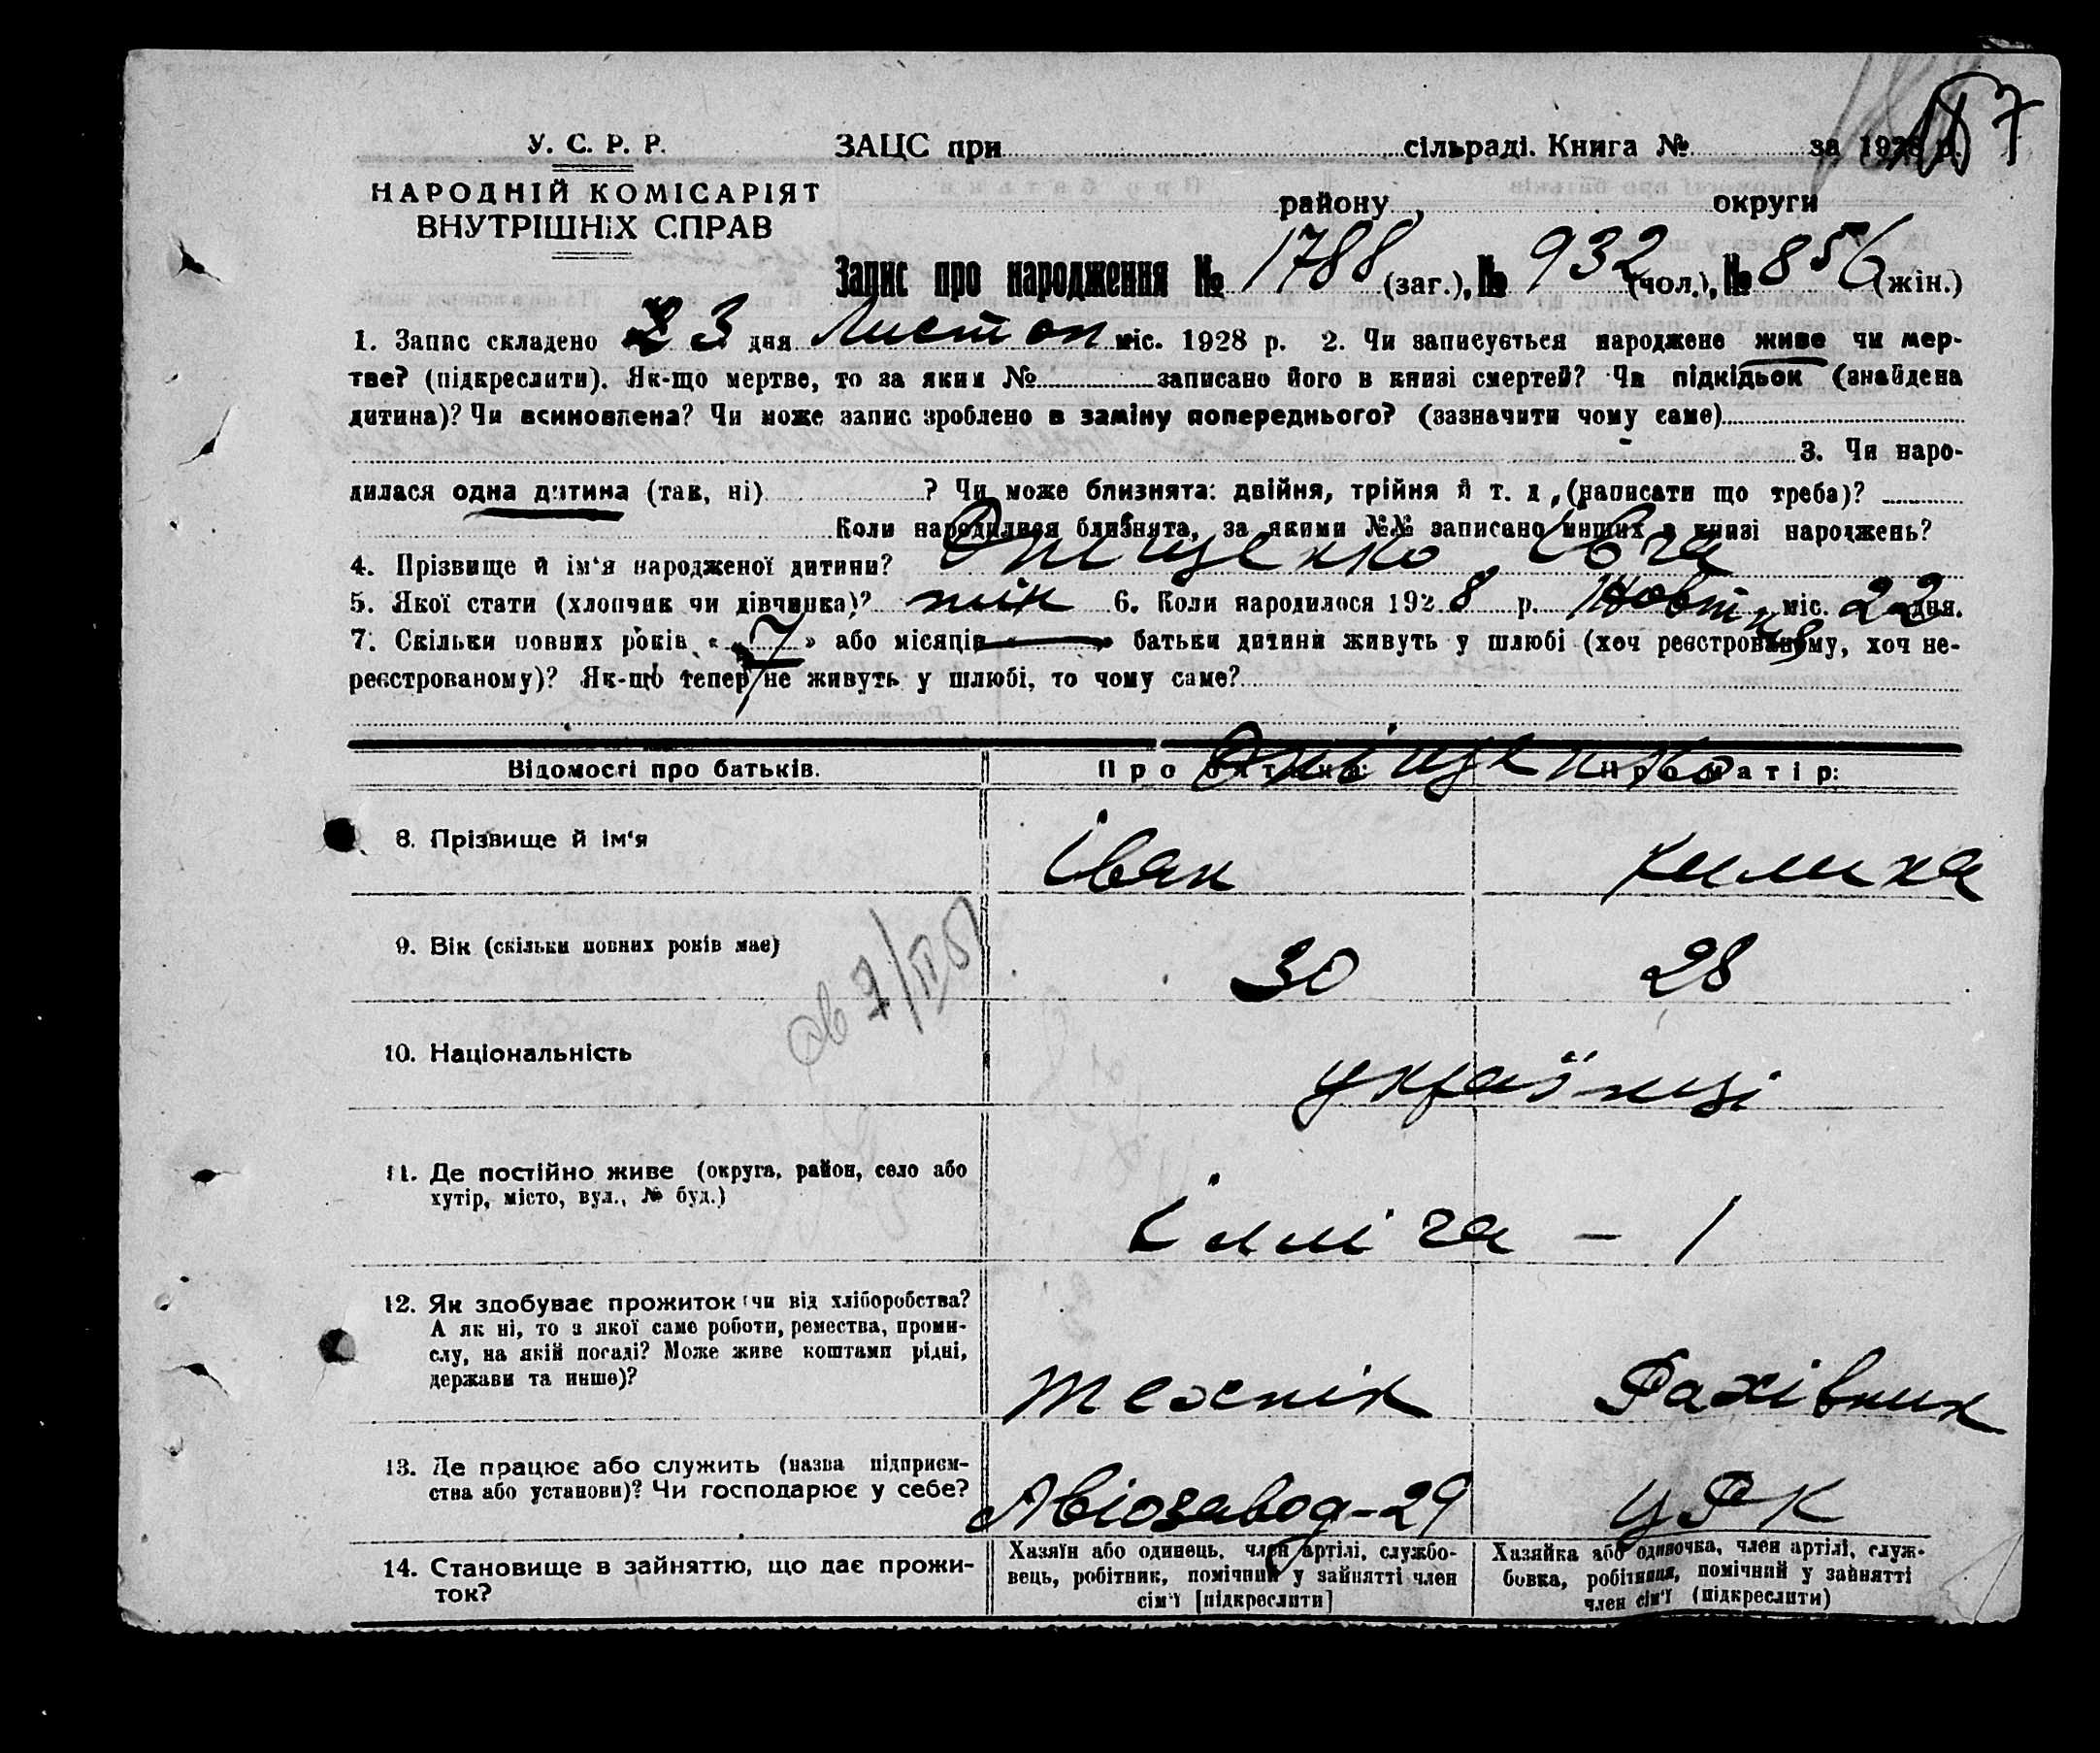 187
У. С. Р. Р.
ЗАЦС при сільраді. Книга № за 1928 р.
НАРОДНІЙ КОМІСАРІЯТ
ВНУТРІШНІХ СПРАВ
району, округи
Запис про народження № 1788 (заг.), № 932 (чол.), № 856 (жін.)
1. Запис складено 23 дня Листоп міс. 1928 р. 2. Чи записується народжене живе чи мер-
тве? (підкреслити). Як-що мертве, то за яким № записано його в книзі смертей? Чи підкідьок (знайдена
дитина)? Чи всиновлена? Чи може запис зроблено в заміну попереднього? (зазначити чому саме)
3. Чи наро-
дилася одна дитина (так, ні) ? Чи може близнята: двійня, трійня й т. д. (написати що треба)?
Коли народилися близнята, за якими №№ записано инших в книзі народжень?
4. Прізвище й ім'я народженої дитини? Оніщенко
5. Якої стати (хлопчик чи дівчинка)? 6. Коли народилося 1928 р. Жовтня міс. 22 дня.
7. Скільки повних років « 7 » або місяців « — » батьки дитини живуть у шлюбі (хоч реєстрованому, хоч не-
реєстрованому)? Як-що тепер не живуть у шлюбі, то чому саме?
Відомості про батьків. Про батька: Про матір:
Оніщенко
8. Прізвище й ім'я Іван Килина
9. Вік (скільки повних років має) 30 28
10. Національність українці
11. Де постійно живе (округа, район, село або
хутір, місто, вул., № буд.) Ілліча - 1
12. Як здобуває прожиток (чи від хліборобства?
А як ні, то з якої саме роботи, ремества, проми-
слу, на якій посаді? Може живе коштами рідні,
держави та инше)? Технік Фахівник
13. Де працює або служить (назва підприєм-
ства або установи)? Чи господарює у себе? Авіозавод-29 ЦРК
14. Становище в зайняттю, що дає прожи-
ток?
Хазяїн або одинець, член артілі, службо-
вець, робітник, помічний у зайнятті член
сім'ї [підкреслити]
Хазяйка або одиночка, член артілі, служ-
бовка, робітниця, помічний у зайнятті
член сім'ї (підкреслити)